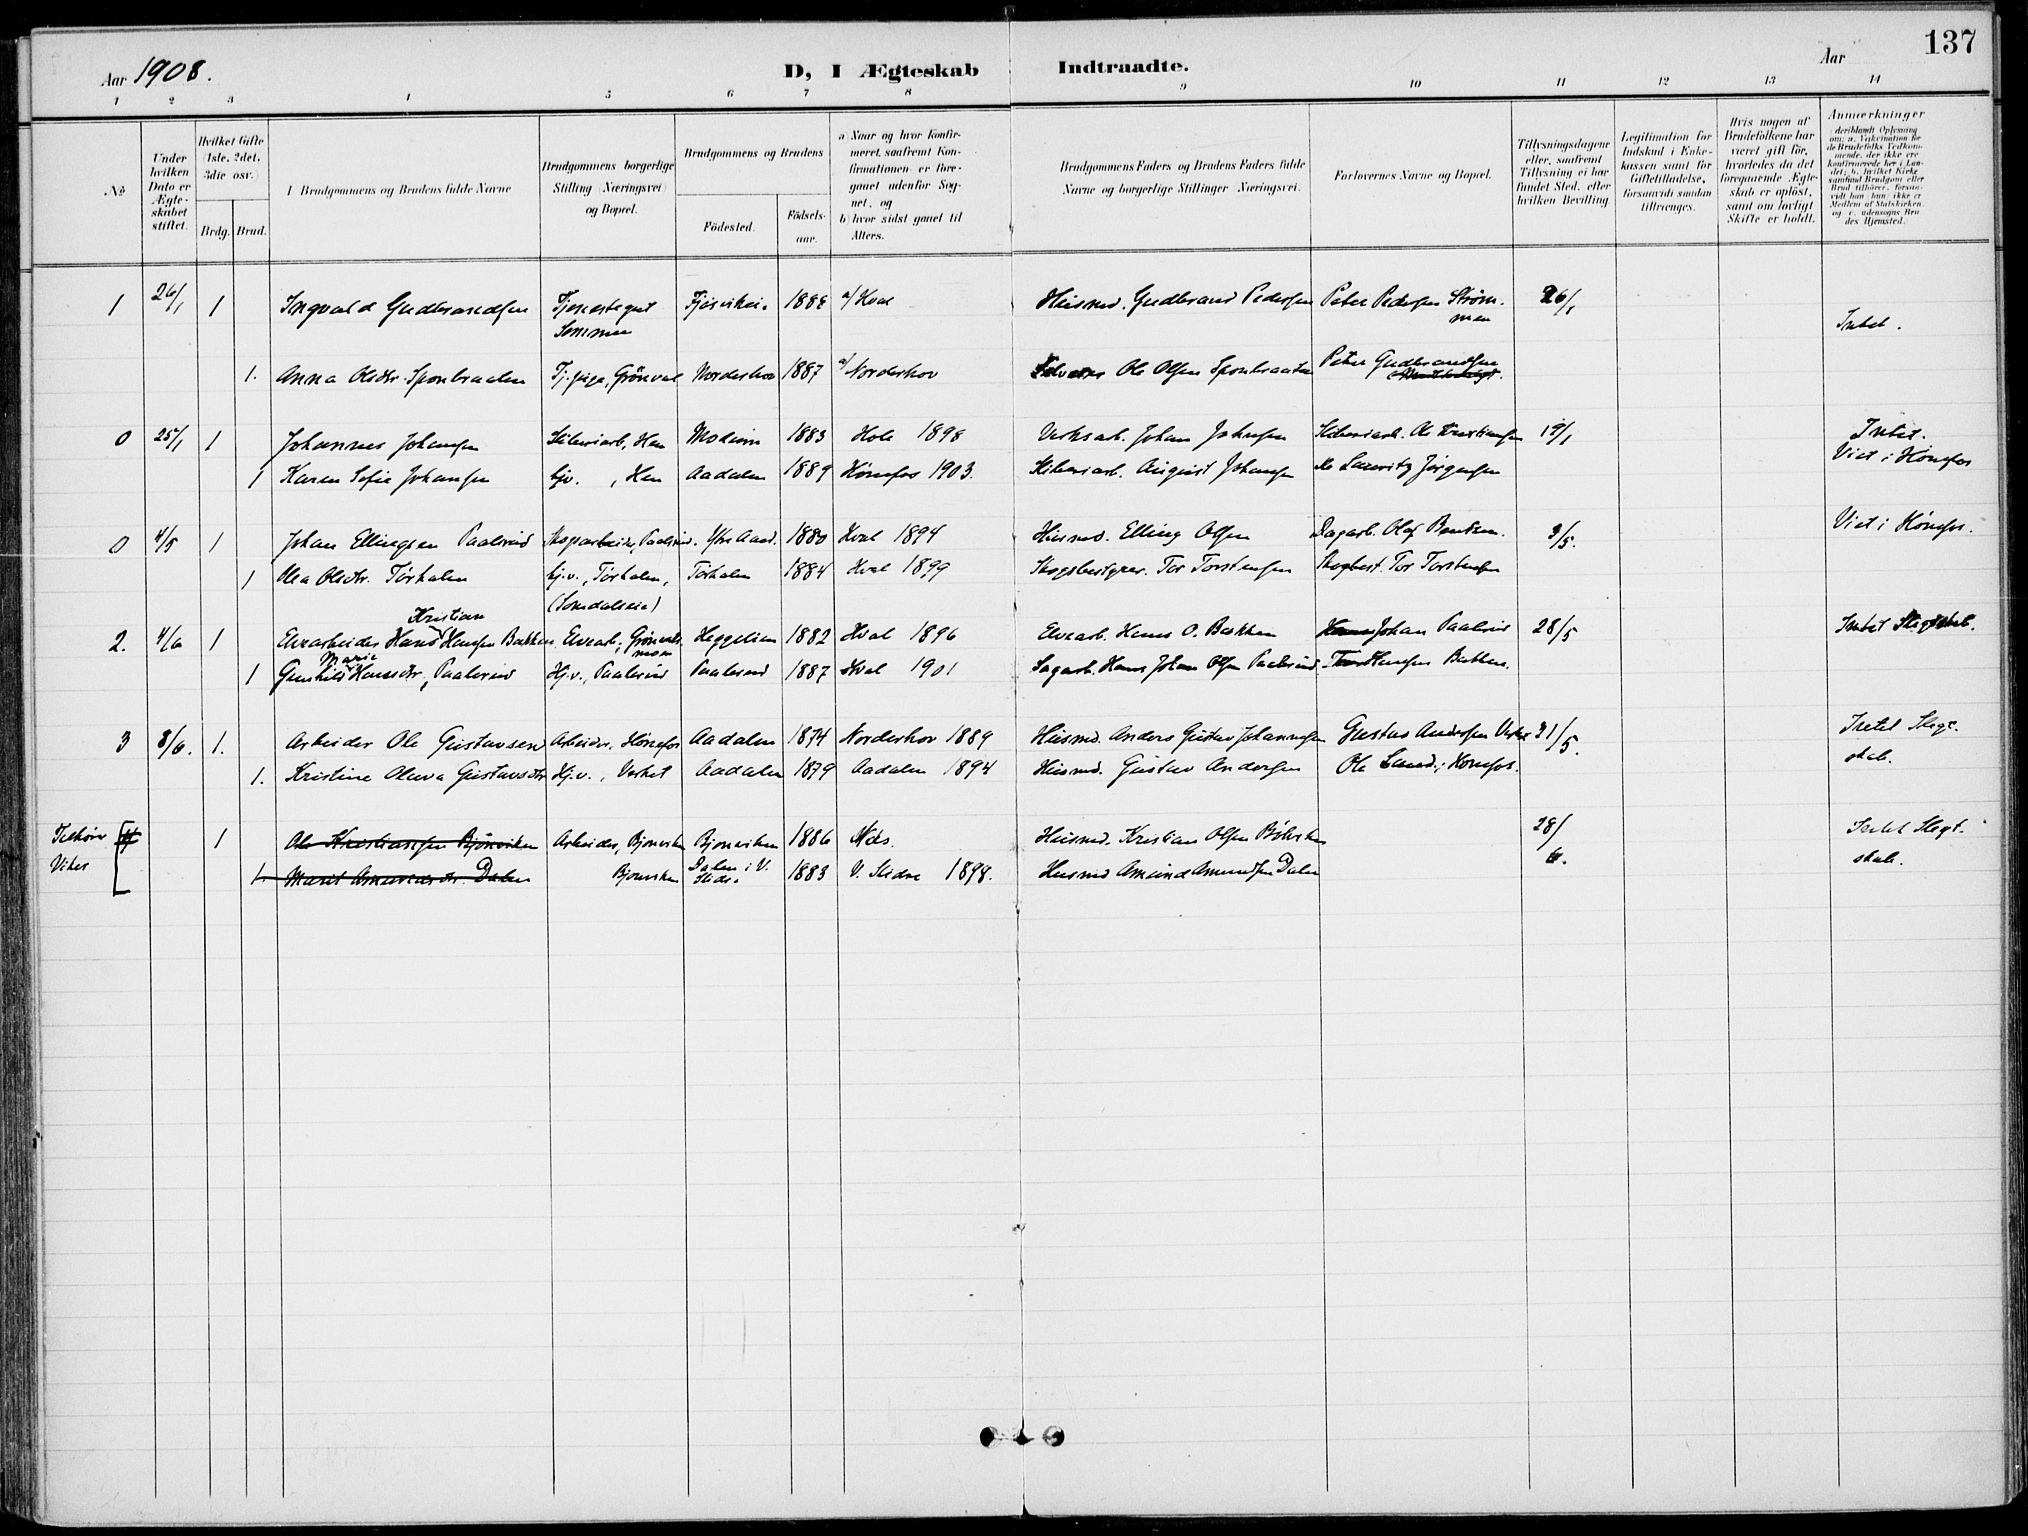 137
Aar 1908.
D, I Ægteskab Indtraadte.
Aar
1 2 3 4 5 6 7 8 9 10 11 12 13 14
No
Under hvilken Dato er Ægteskabet stiftet.
Hvilket Gifte (1ste, 2det, 3die osv.)
Brdg. Brud.
Brudgommens og Brudens fulde Navne
Brudgommens borgerlige Stilling (Næringsvei) og Bopæl.
Brudgommens og Brudens
Födested.
Födsels-aar.
a) Naar og hvor Konfirmeret, saafremt Konfirmationen er foregaaet udenfor Sognet, og
b) hvor sidst gaaet til Alters.
Brudgommens Faders og Brudens Faders fulde Navne og borgerlige Stillinger (Næringsvei).
Forlovernes Navne og Bopæl.
Tillysningsdagene eller, saafremt Tillysning ei har fundet Sted, efter hvilken Bevilling
Legitimation for Indskud i Enkekassen samt for Giftetilladelse, forsaavidt saadan tiltrænges.
Hvis nogen af Brudefolkene har været gift før, hvorledes da det foregaaende Ægteskab er opløst, samt om lovligt Skifte er holdt.
Anmærkninger
1 26/1 1 Ingvald Gudbrandsen Tjenestegut Semmen Fjeisvikei. 1888 a/ Hval Husmd. Gudbrand Pedersen Peter Pedersen Strømmen 26/1 Intet.
1. Anna Olsdtr. Sponbraaten Tj.pige, Grönvol Norderhov 1887 a/ Norderhov Ole Olsen Sponbraaten Peter Gudbrandsen
0 25/1 1 Johannes Johansen Sliberiarb, Hen Modum 1883 Hole 1898 Verksarb. Johan Johansen Sliberiarb. Ole Kristiansen 19/1 Intet.
1 Karen Sofie Johansen hjv. , Hen Aadalen 1889 Hønefos 1903. Sliberiarb. August Johansen do Lauritz Jörgensen Viet i Hønefos
0 4/5 1 Johan Ellingsen Paalerud Skogsarbeider, Paalerud. Ytre Aad. 1880 Hval 1894 Husmd. Elling Olsen Dagarb. Olaf Bentsen. 3/5. Viet i Hønefos.
1 Olea Olsdtr. Törhalen hj.v., Törhalen, (Somdalseie) Törhalen 1884 Hval 1899 Skogsbestyrer. Tor Torstensen Skogbest. Tor Torstensen
2. 4/6 1 Elvearbeider Hans Kristian Hansen Bakken Elvearb, Grönvoldmoen Heggelien 1882 Hval 1896 Elvearb. Hans O. Bakken Johan Paalerud 28/5 Intet Slegtskab.
1 Gunhild Marie Hansdtr. Paalerud Hj.v., Paalerud Paalerud 1887 Hval 1901 Sagarb. Hans Johan Olsen Paalerud Hansen Bakken.
3 8/6. 1. Arbeider Ole Gustavsen Arbeider, Hønefos Aadalen 1874 Norderhov 1889 Husmd. Anders Gustav Johannesen Gustav Andersen Verket 31/5. Intet Slegtskab.
1. Kristine Oluva Gustavsdtr Hj.v. , Verket Aadalen 1879 Aadalen 1894 Husmd. Gustav Andersen Ole Lund, Hønefos.
Tilhører Viker 4 1 Ole Kristiansen Bjönviken Arbeider, Bjonviken Bjonviken 1886 Nes. Husmd. Kristian Olsen 28/6. Intet Slegtskab.
1. Marit Amundsdtr. Dalen Bjonviken Dalen i V. Slidre 1883 V. Slidre 1898. Husmd Amund Amundsen Dalen